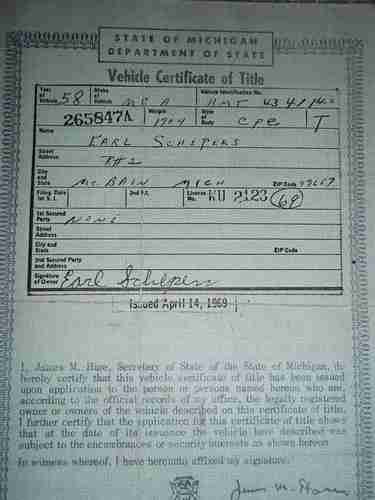 STATE OF MICHIGAN
DEPARTMENT OF STATE
Vehicle Certificate of Title
Year of Vehicle 58 Make of Vehicle M G A Vehicle Identification No. HMT 43 4
265847A Weight Style of Body Cpe T
Name
EARL SCHEPERS
Street Address R#2
City and State McBAIN MICH ZIP Code
Filing Date 1st S.I. 2nd F.I. License No. KU 2123 69
1st Secured Party NONE
Street Address
City and State ZIP Code
2nd Secured Party and Address
Signature of Owner Earl Schepers
Issued April 14, 1969
I, James M. Hare, Secretary of State of the State of Michigan, do
hereby certify that this vehicle certificate of title has been issued
upon application to the person or persons named hereon who are,
according to the official records of my office, the legally registered
owner or owners of the vehicle described on this certificate of title.
I further certify that the application for this certificate of title shows
that at the date of its issuance the vehicle here described was
subject to the encumbrances or security interests as shown hereon.
In witness whereof, I have hereunto affixed my signature.
James M. Hare